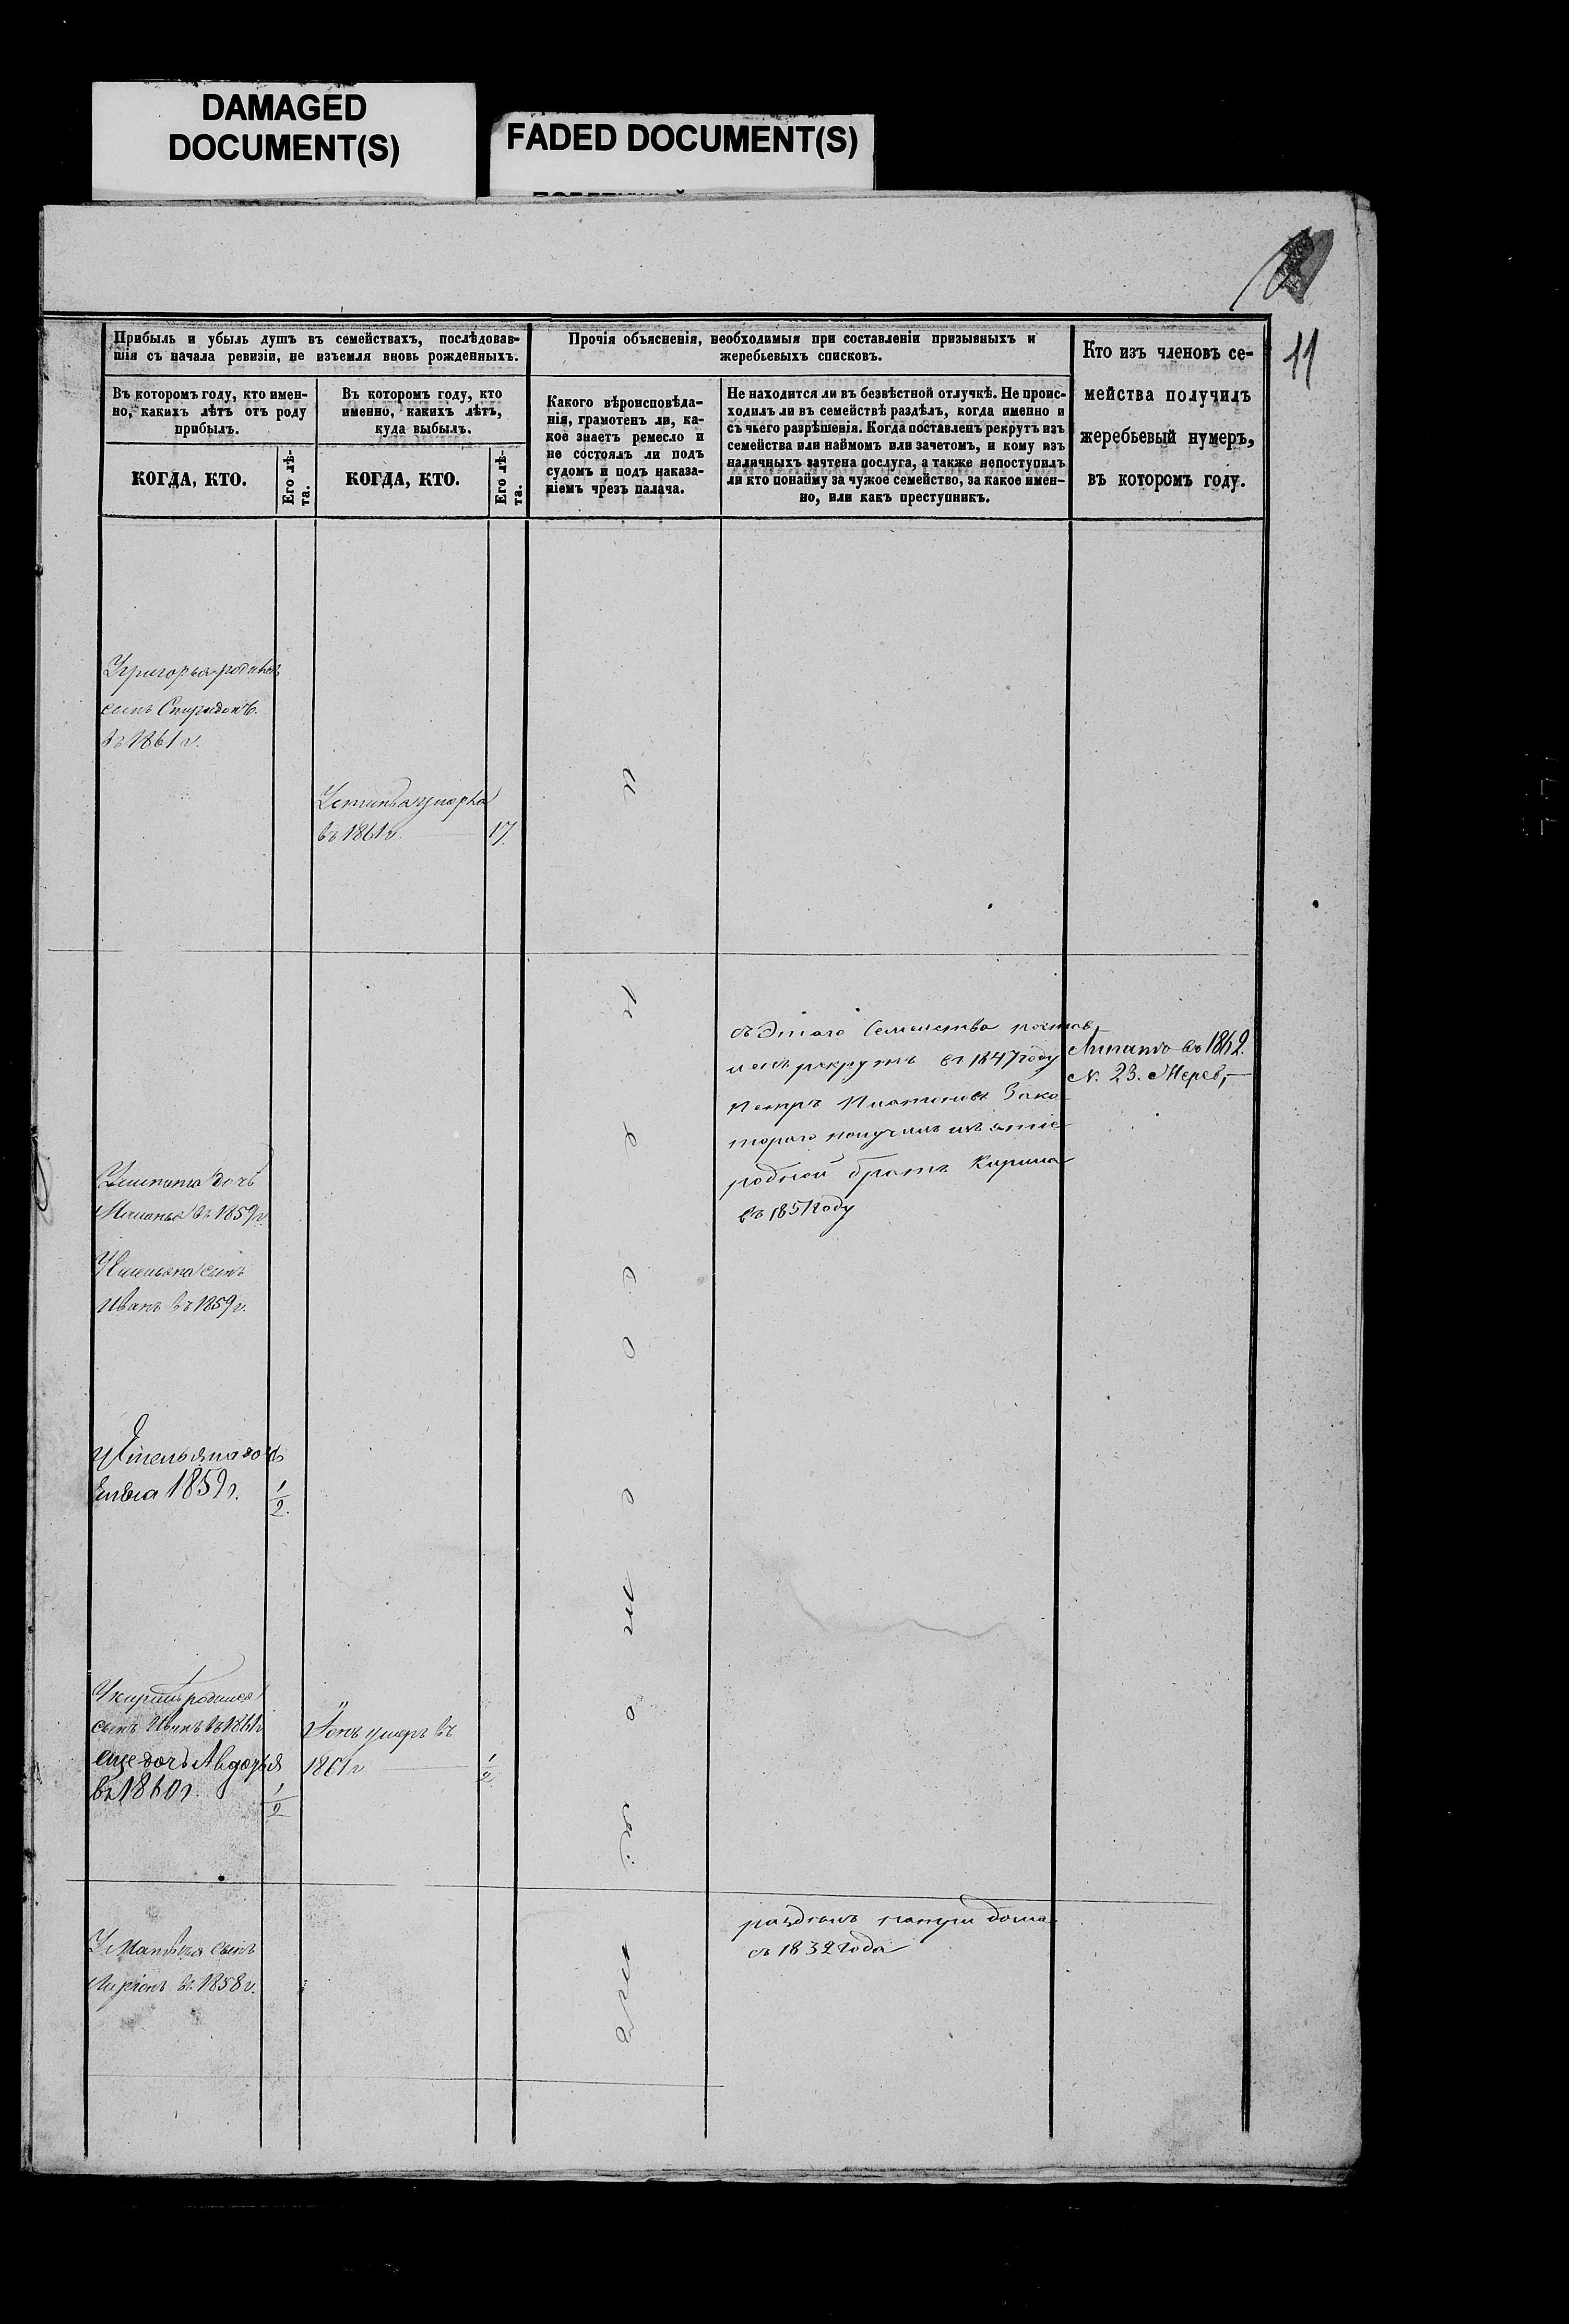 DAMAGED
DOCUMENT(S)
FADED DOCUMENT(S)
11
Прибыль и убыль душъ въ семействахъ, послѣдовав-
шія съ начала ревизіи, не изъемля вновь рожденныхъ.
Въ которомъ году, кто имен-
но, какихъ лѣтъ отъ роду
прибылъ.
Въ которомъ году, кто
именно, какихъ лѣтъ,
куда выбылъ.
КОГДА, КТО.
Его лѣ-
та.
КОГДА, КТО.
Его лѣ-
та.
Прочія объясненія, необходимыя при составленіи призывныхъ и
жеребьевыхъ списковъ.
Какого вѣроисповѣда-
нія, грамотенъ ли, ка-
кое знаетъ ремесло и
не состоялъ ли подъ
судомъ и подъ наказа-
ніемъ чрезъ палача.
Не находится ли въ безвѣстной отлучкѣ. Не проис-
ходилъ ли въ семействѣ раздѣлъ, когда именно и
съ чьего разрѣшенія. Когда поставленъ рекрутъ изъ
семейства или наймомъ или зачетомъ, и кому изъ
наличныхъ зачтена послуга, а также непоступилъ
ли кто понайму за чужое семейство, за какое имен-
но, или какъ преступникъ.
Кто изъ членовъ се-
мейства получилъ
жеребьевый нумеръ,
въ которомъ году.
Угригорья родился
сынъ Спиридонъ.
въ 1861 г.
Устинья умерла
въ 1861 г. 17
съ Этаго Семейства постав,
рекрутъ въ 1847 году
Петръ Зако
тораго получилъ
родной братъ Кирила
въ 1851 году
въ 1862.
N. 23. Жереб,
дочь
въ 1859 г.
сынъ
Иванъ въ 1859 г.
УЯмельяна дочь
1859 г. 1/2.
Укирилы родился
сынъ Иванъ въ 1861 г
еще дочь Авдотья
въ 1860 г. 1/2
умеръ въ
1861 г 1/2
УМатвея сынъ
въ 1858 г.
дома
съ 1832 года